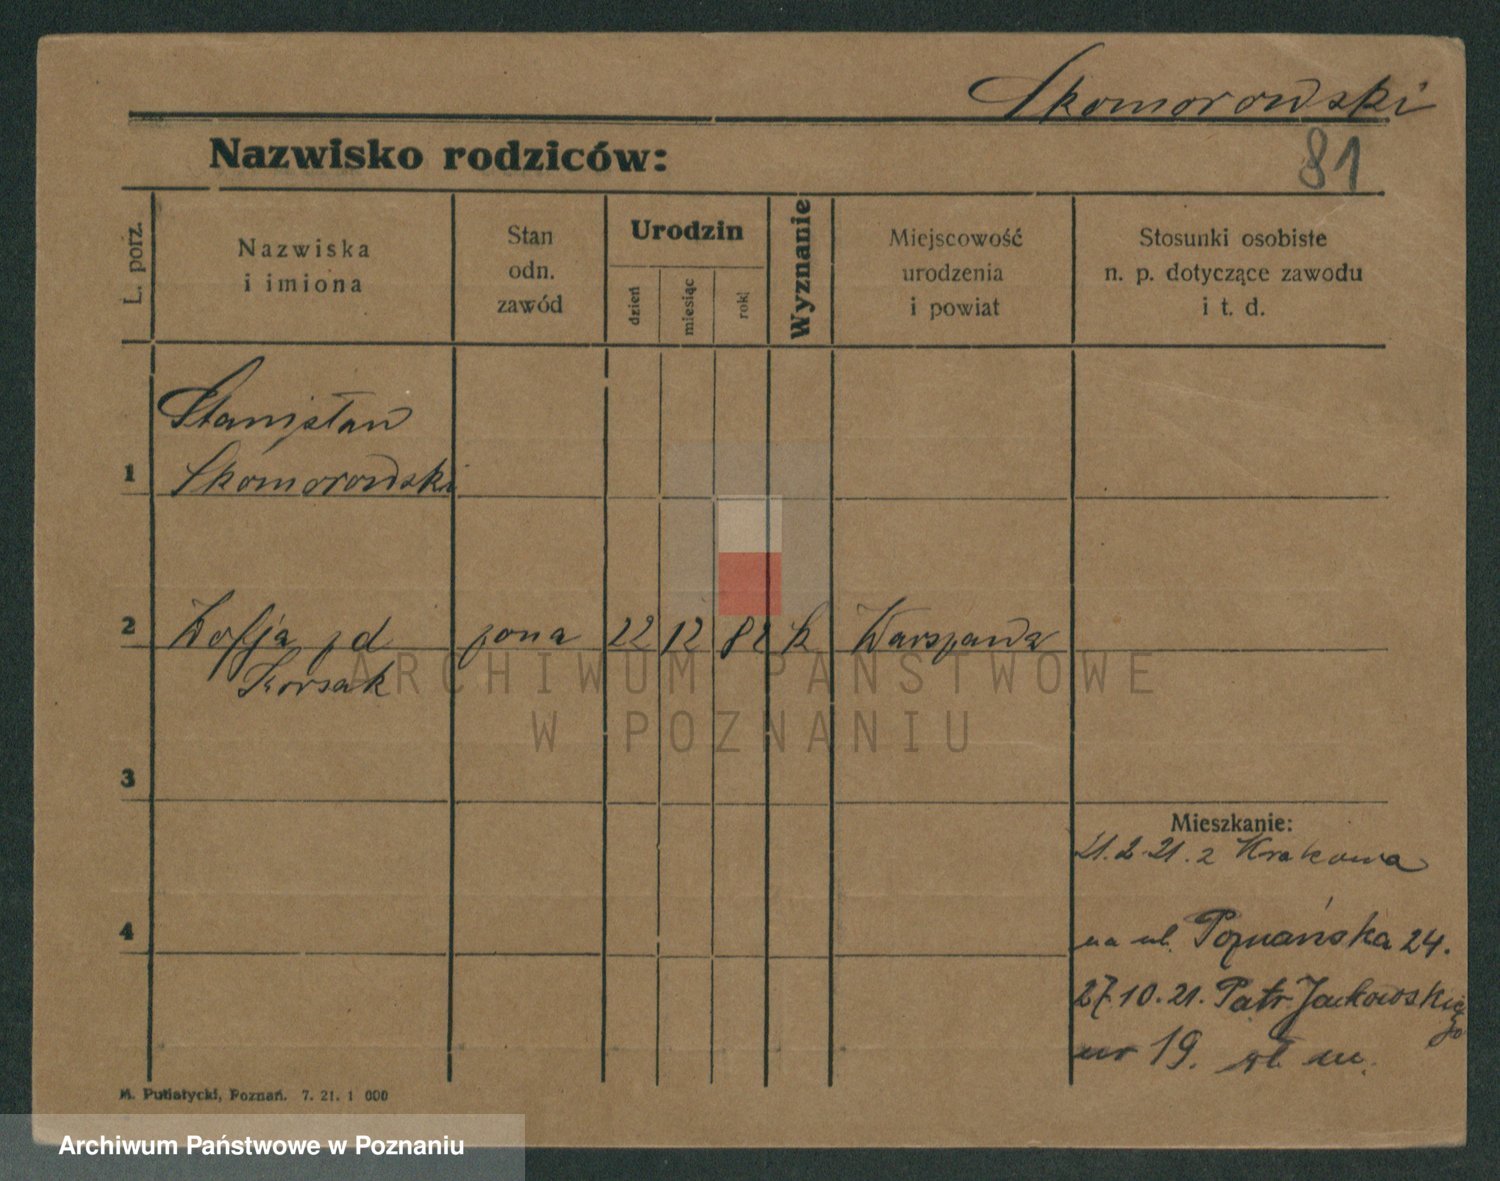 Skomorowski
81
Nazwisko rodziców:
L. porz.
Nazwiska
i imiona
Stan
odn.
zawód
Urodzin
dzień
miesiąc
rok
Wyznanie
Miejscowość
urodzenia
i powiat
Stosunki osobiste
n. p. dotyczące zawodu
i t. d.
Stanisław
1 Skomorowski
2 Zofja zd żona 22 12 82 k Warszawa
Korsak
ARCHIWUM PAŃSTWOWE
W POZNANIU
3
Mieszkanie:
21.2.21. z Krakowa
4
na ul. Poznańska 24.
27.10.21. Patr. Jackowskiego
nr 19.
M. Putiatycki, Poznań. 7. 21. 1 000
Archiwum Państwowe w Poznaniu